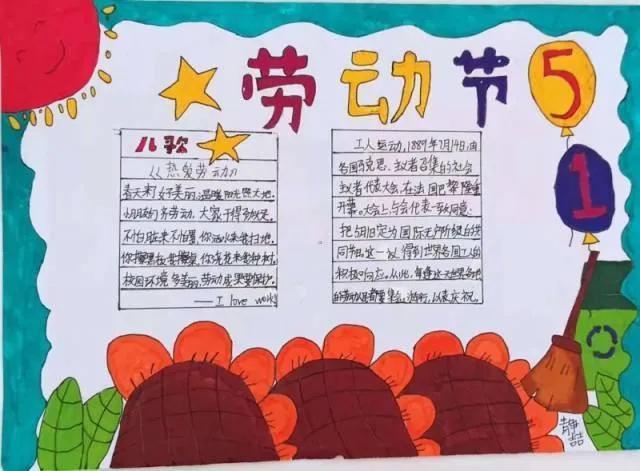 劳动节
5
1
儿歌
《热爱劳动》
春天来了好美丽,温暖阳光照大地。
小朋友们齐劳动,大家干得多欢天。
不怕脏来不怕累,你洒水来我扫地。
你擦黑板我擦桌,你浇花来我种树。
校园环境多美丽,劳动成果要保护。
——I love work
工人运动,1889年7月14日,由
各国马克思主义者召集的社会
主义者代表大会,在法国巴黎隆重
开幕。大会上,与会代表一致同意:
把5月1日定为国际无产阶级的共
同节日。这一以得到世界各国工人的
积极响应。从此,每逢这一天世界各地
的劳动人民都要集会、游行,以表庆祝。
静
喆